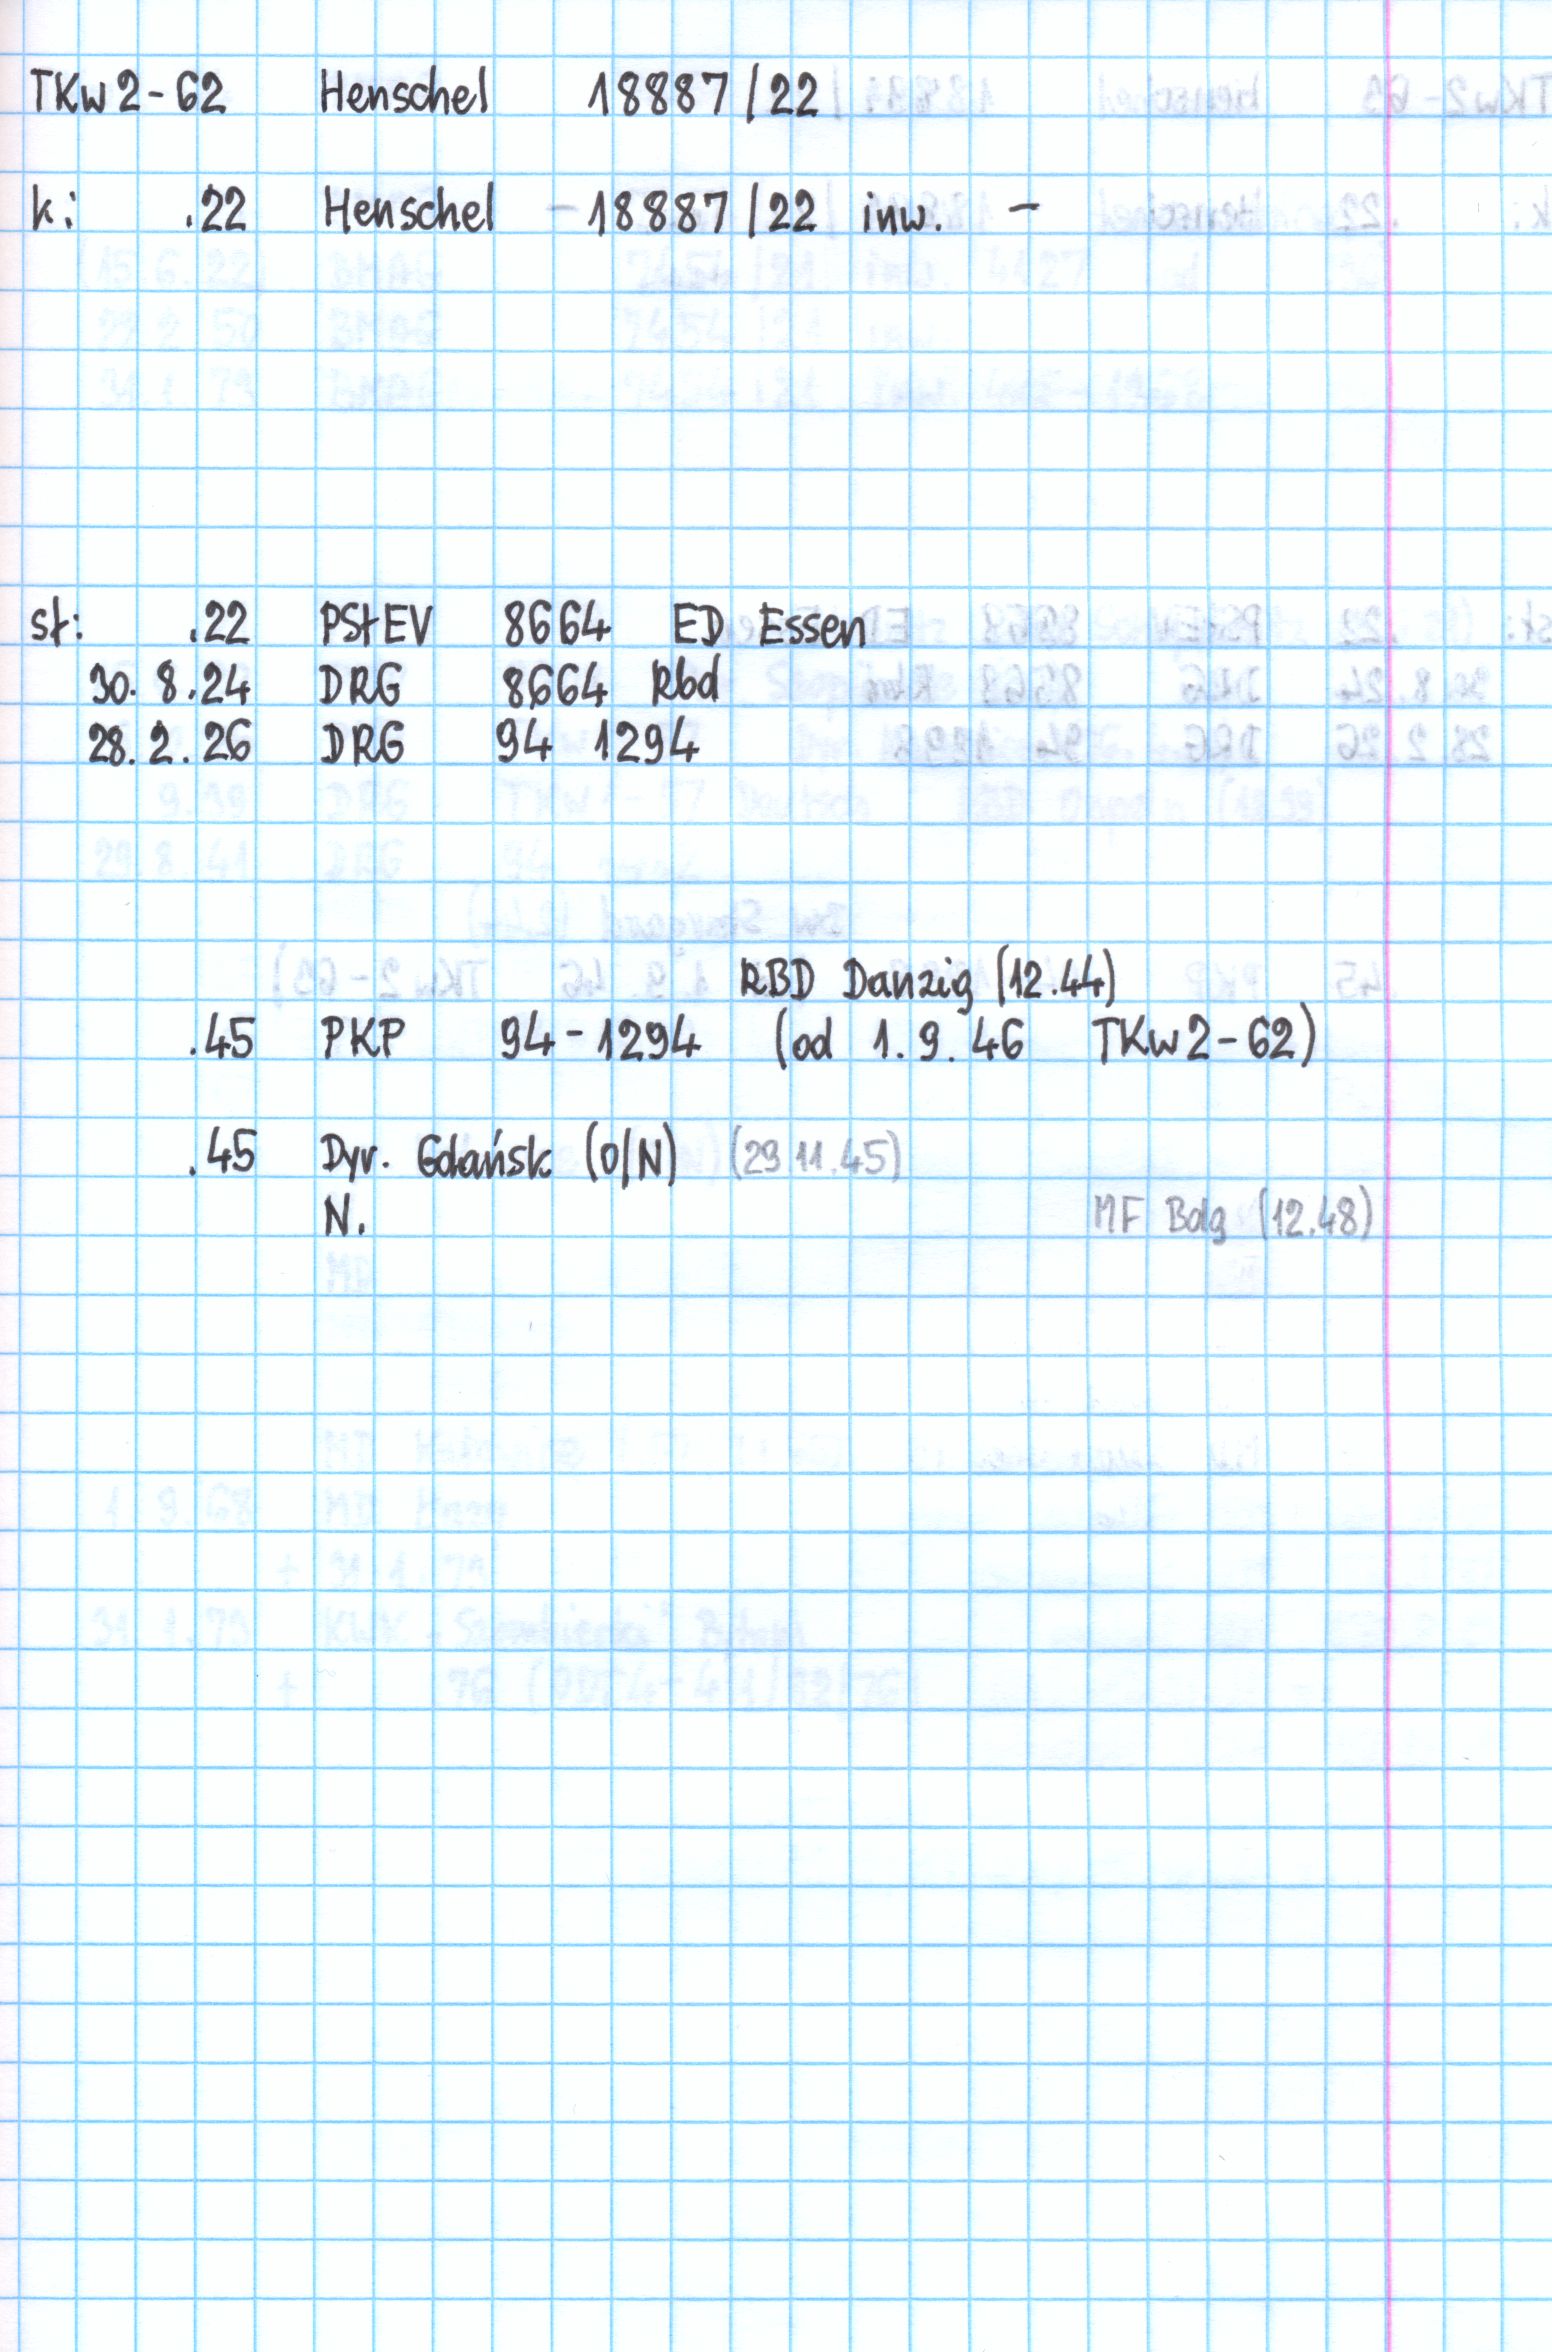 TKw2-62 Henschel 18887/22
k: .22 Henschel - 18887/22 inw. -
st: .22 PStEV 8664 ED Essen
30.8.24 DRG 8664 Rbd
28.2.26 DRG 94 1294
RBD Danzig (12.44)
.45 PKP 94-1294 (od 1.9.46 TKw2-62)
.45 Dyr. Gdańsk (O/N) (29.11.45)
N. MF Bdg (12.48)